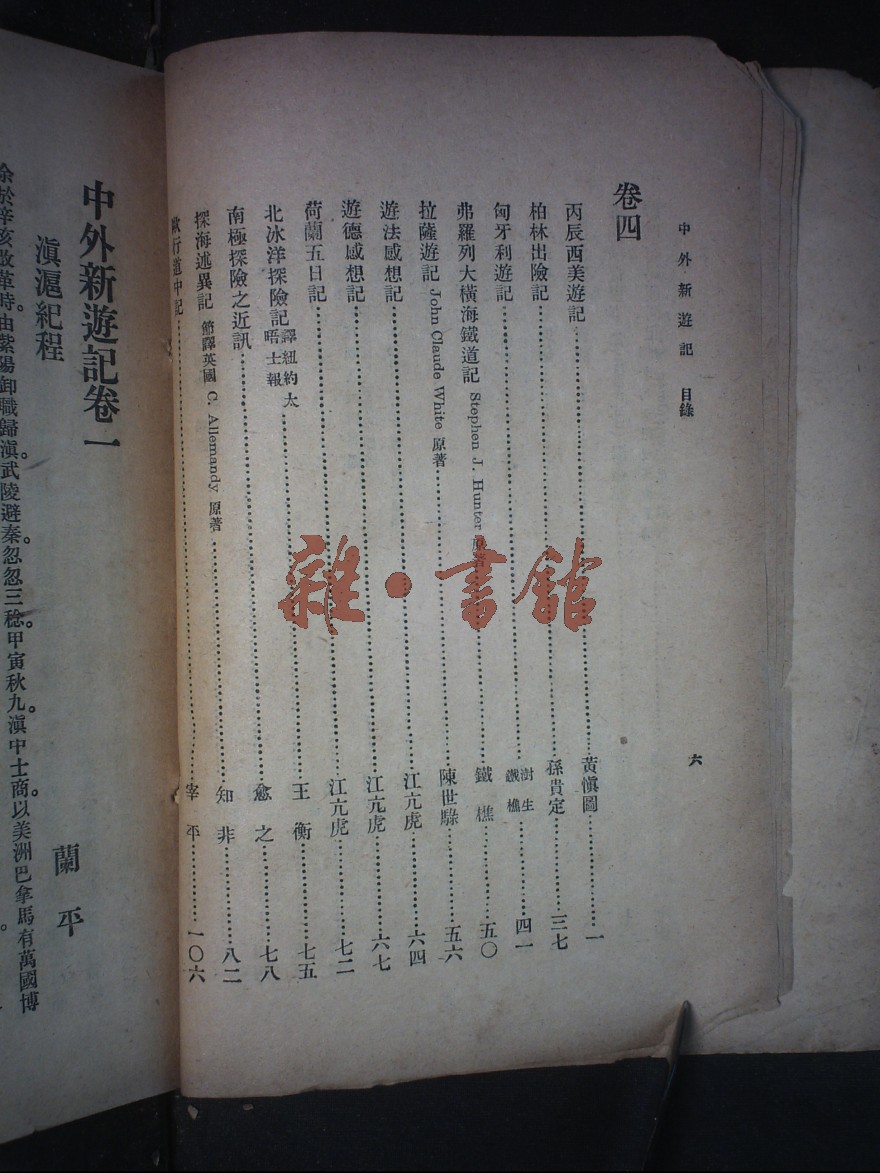 中外新遊記 目錄
六
卷四
丙辰西美遊記……黃愼圖……一
柏林出險記……孫貴定……三七
匈牙利遊記……樹生 鐵樵……四一
弗羅列大橫海鐵道記 Stephen J. Hunter 原著……鐵樵……五〇
拉薩遊記 John Claude White 原著……陳世騄……五六
遊法感想記……江亢虎……六四
遊德感想記……江亢虎……六七
荷蘭五日記……江亢虎……七二
北冰洋探險記 譯紐約太晤士報……王衡……七五
南極探險之近訊……愈之……七八
探海述異記 節譯英國 C. Allemandy 原著……知非……八二
歐行道中記……宰平……一〇六
中外新遊記卷一
滇滬紀程
蘭平
余於辛亥改革時。由紫陽卸職歸滇。武陵避秦。忽忽三稔。甲寅秋九。滇中士商。以美洲巴拿馬有萬國博
雜·書館